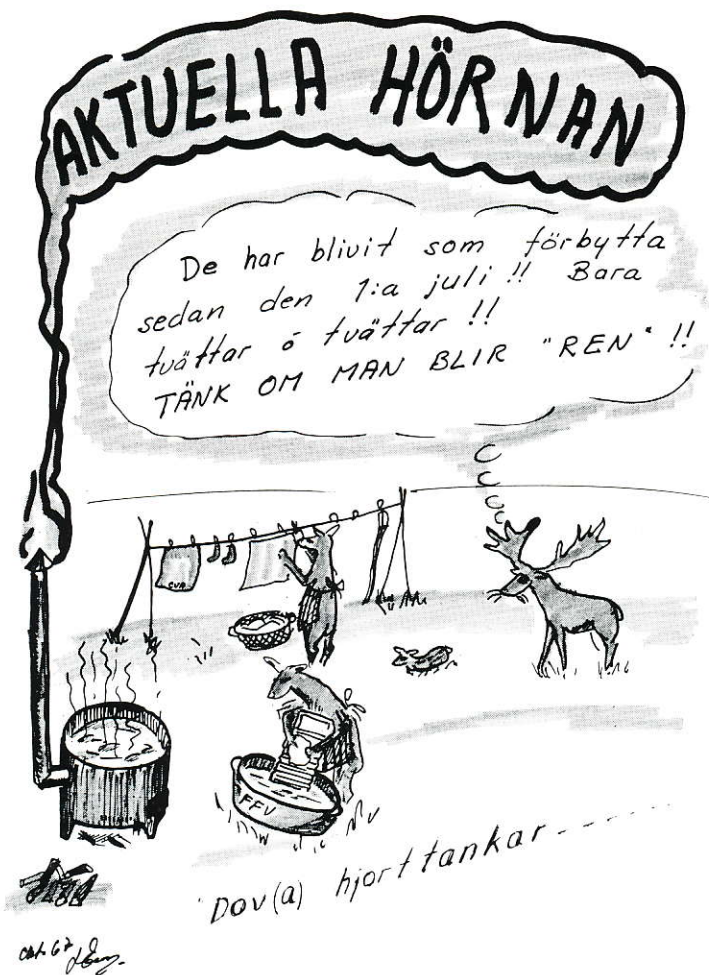 AKTUELLA HÖRNAN
De har blivit som förbytta
sedan den 1:a juli!! Bara
tvättar ó tvättar!!
TÄNK OM MAN BLIR "REN"!!
CVA
FFV
Dov(a) hjorttankar-----
okt. 67